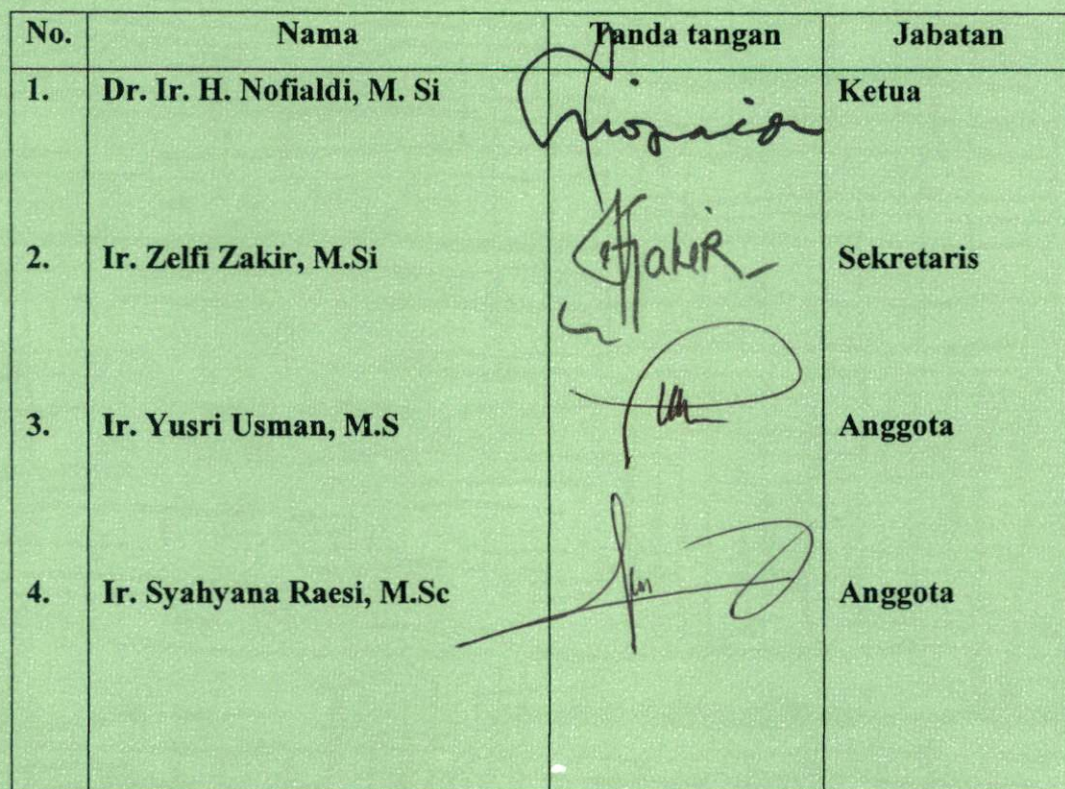 No. Nama Tanda tangan Jabatan
1. Dr. Ir. H. Nofialdi, M. Si Ketua
2. Ir. Zelfi Zakir, M.Si Sekretaris
3. Ir. Yusri Usman, M.S Anggota
4. Ir. Syahyana Raesi, M.Sc Anggota